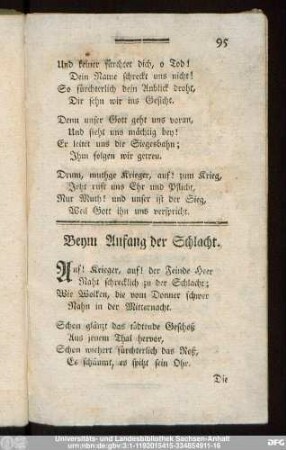 95
Und keiner fürchtet dich, o Tod!
Dein Name schreckt uns nicht!
So fürchterlich dein Anblick droht,
Dir sehn wir ins Gesicht.
Denn unser Gott geht uns voran,
Und steht uns mächtig bey!
Er leitet uns die Siegesbahn;
Ihm folgen wir getreu.
Drum, muthge Krieger, auf! zum Krieg,
Jetzt ruft uns Ehr und Pflicht,
Nur Muth! und unser ist der Sieg,
Weil Gott ihn uns verspricht.
Beym Anfang der Schlacht.
Auf! Krieger, auf! der Feinde Heer
Naht schrecklich zu der Schlacht;
Wie Wolken, die vom Donner schwer
Nahn in der Mitternacht.
Schon glänzt das tödtende Geschoß
Aus jenem Thal hervor,
Schon wiehert fürchterlich das Roß,
Es schäumt, es spitzt sein Ohr.
Die
Universitäts- und Landesbibliothek Sachsen-Anhalt
urn:nbn:de:gbv:3:1-1192015415-334854911-16